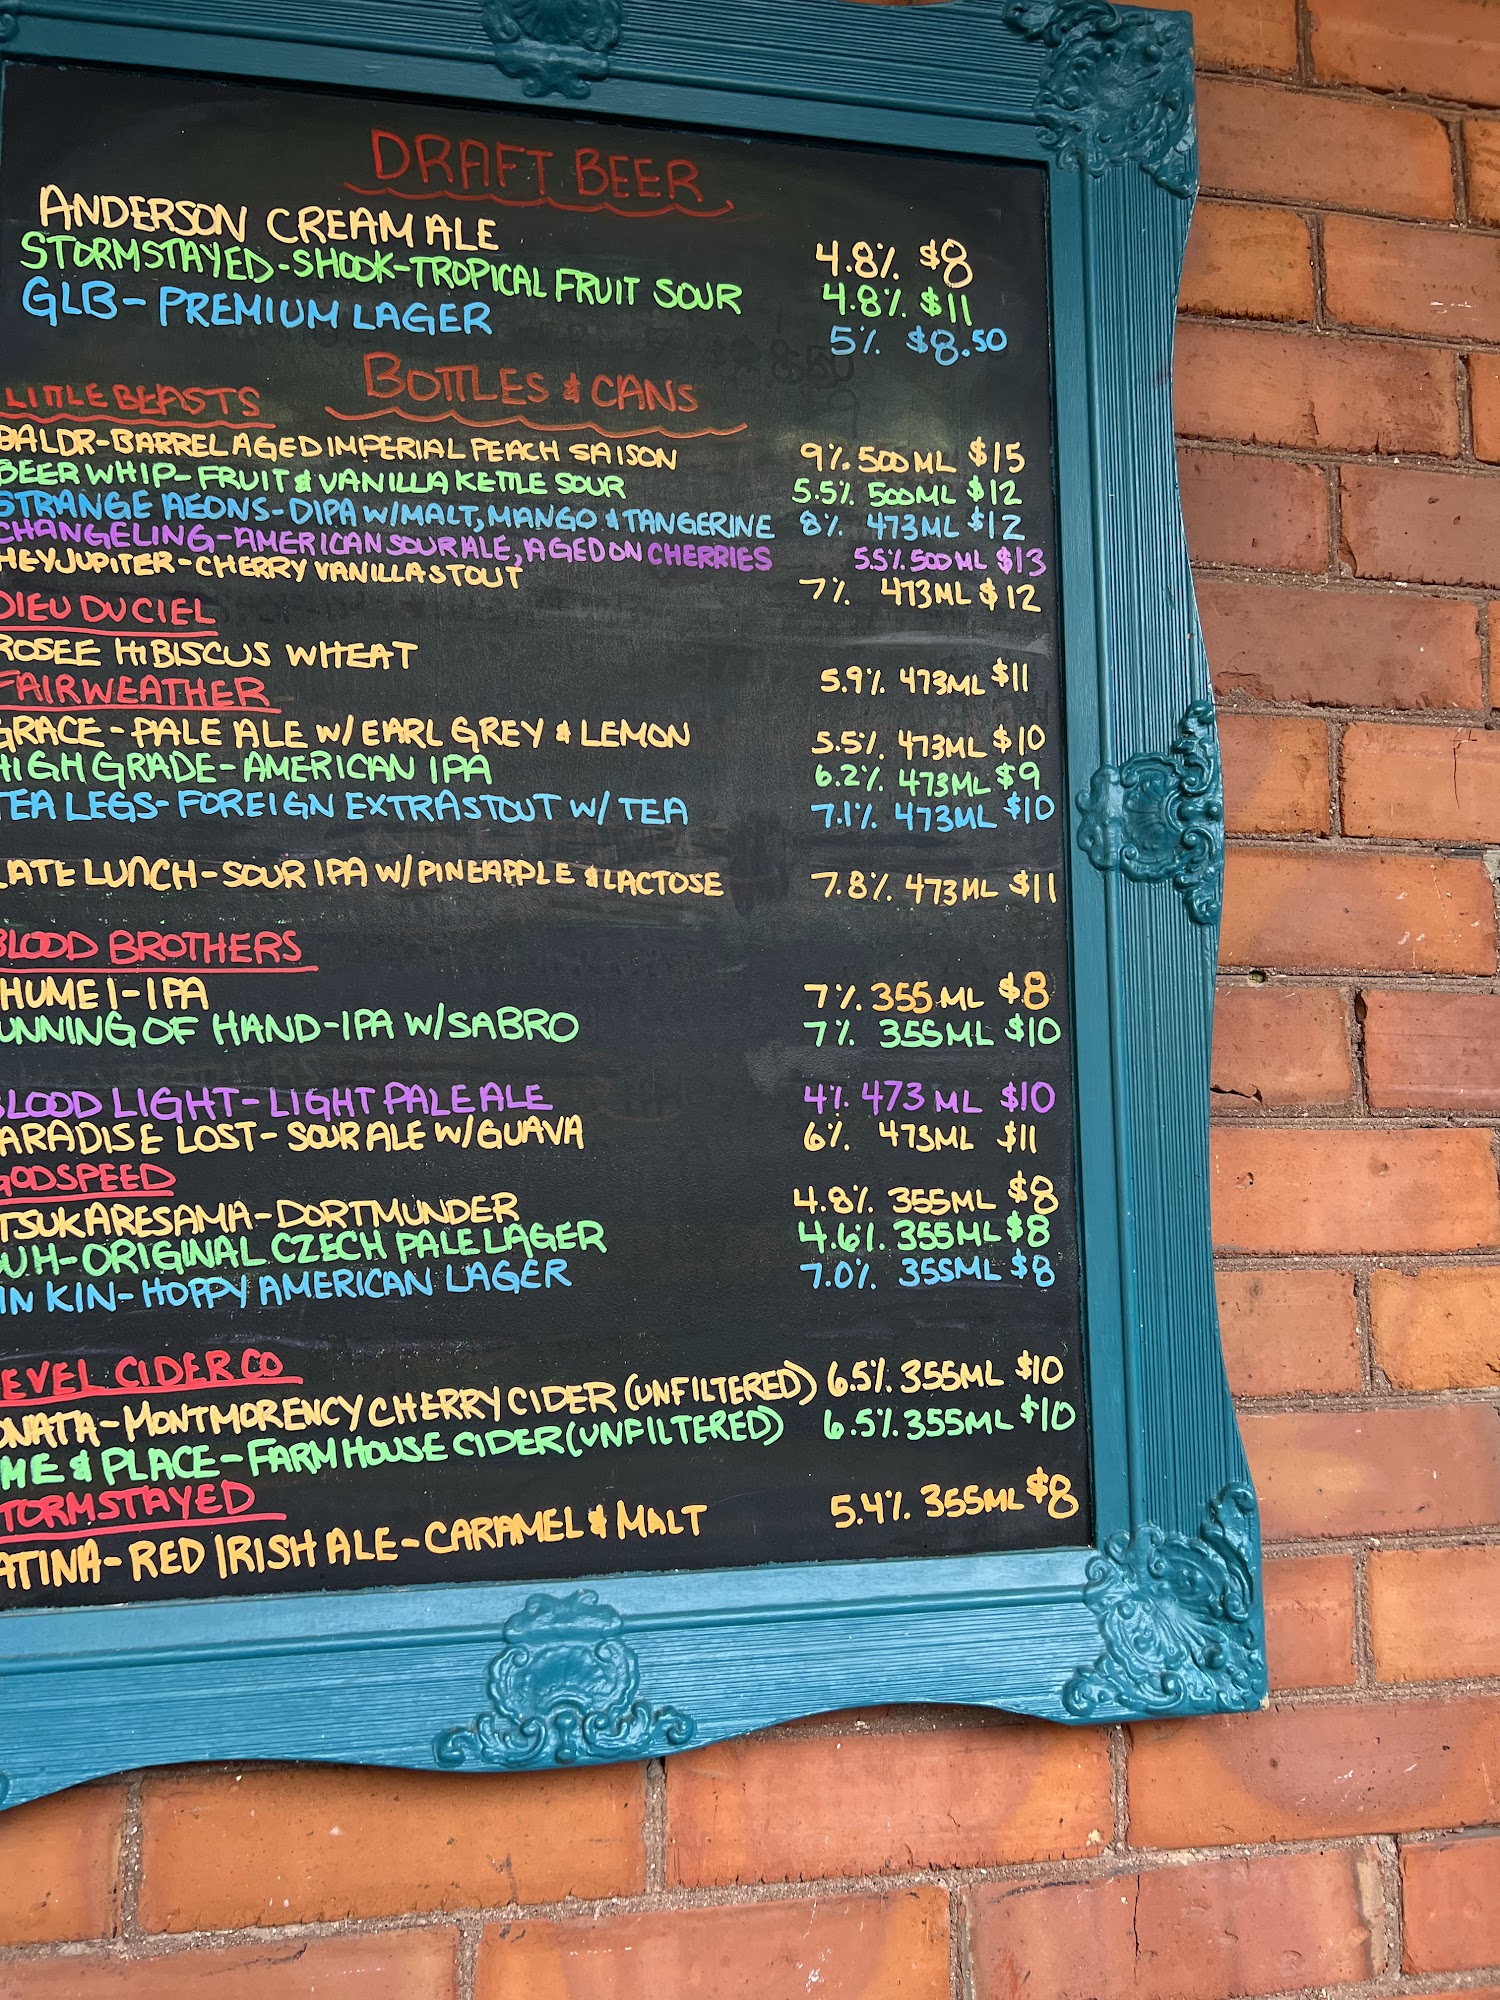 DRAFT BEER
ANDERSON CREAM ALE 4.8% $8
STORMSTAYED-SHOOK-TROPICAL FRUIT SOUR 4.8% $11
GLB-PREMIUM LAGER 5% $8.50
BOTTLES & CANS
LITTLE BEASTS
BALDR-BARREL AGED IMPERIAL PEACH SAISON 9% 500ML $15
BEER WHIP-FRUIT & VANILLA KETTLE SOUR 5.5% 500ML $12
STRANGE AEONS-DIPA W/MALT, MANGO & TANGERINE 8% 473ML $12
CHANGELING-AMERICAN SOUR ALE, AGED ON CHERRIES 5.5% 500ML $13
HEY JUPITER-CHERRY VANILLA STOUT 7% 473ML $12
DIEU DU CIEL
ROSEE HIBISCUS WHEAT 5.9% 473ML $11
FAIRWEATHER
GRACE-PALE ALE W/EARL GREY & LEMON 5.5% 473ML $10
HIGH GRADE-AMERICAN IPA 6.2% 473ML $9
TEA LEGS-FOREIGN EXTRA STOUT W/TEA 7.1% 473ML $10
LATE LUNCH-SOUR IPA W/PINEAPPLE & LACTOSE 7.8% 473ML $11
BLOOD BROTHERS
SHUMEI-IPA 7% 355ML $8
UNNING OF HAND-IPA W/SABRO 7% 355ML $10
BLOOD LIGHT-LIGHT PALE ALE 4% 473ML $10
ARADISE LOST-SOUR ALE W/GUAVA 6% 473ML $11
GODSPEED
OTSUKARESAMA-DORTMUNDER 4.8% 355ML $8
UH-ORIGINAL CZECH PALE LAGER 4.6% 355ML $8
IN KIN-HOPPY AMERICAN LAGER 7.0% 355ML $8
EVEL CIDER CO
ONATA-MONTMORENCY CHERRY CIDER (UNFILTERED) 6.5% 355ML $10
ME & PLACE-FARMHOUSE CIDER (UNFILTERED) 6.5% 355ML $10
TORMSTAYED
ATINA-RED IRISH ALE-CARAMEL & MALT 5.4% 355ML $8